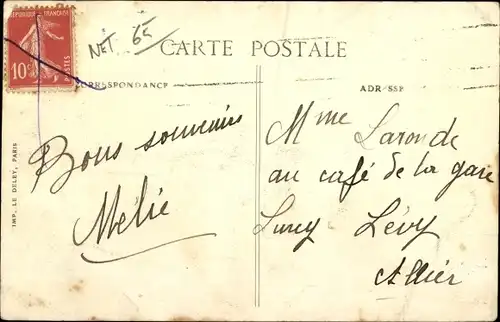 RÉPUBLIQUE FRANÇAISE
10c
POSTES
NET. 65
CARTE POSTALE
CORRESPONDANCE
ADRESSE
Bons souvenirs
Mélie
Mme Laronde
au café de la gare
Lurcy Lévy
Allier
IMP. LE DELEY, PARIS